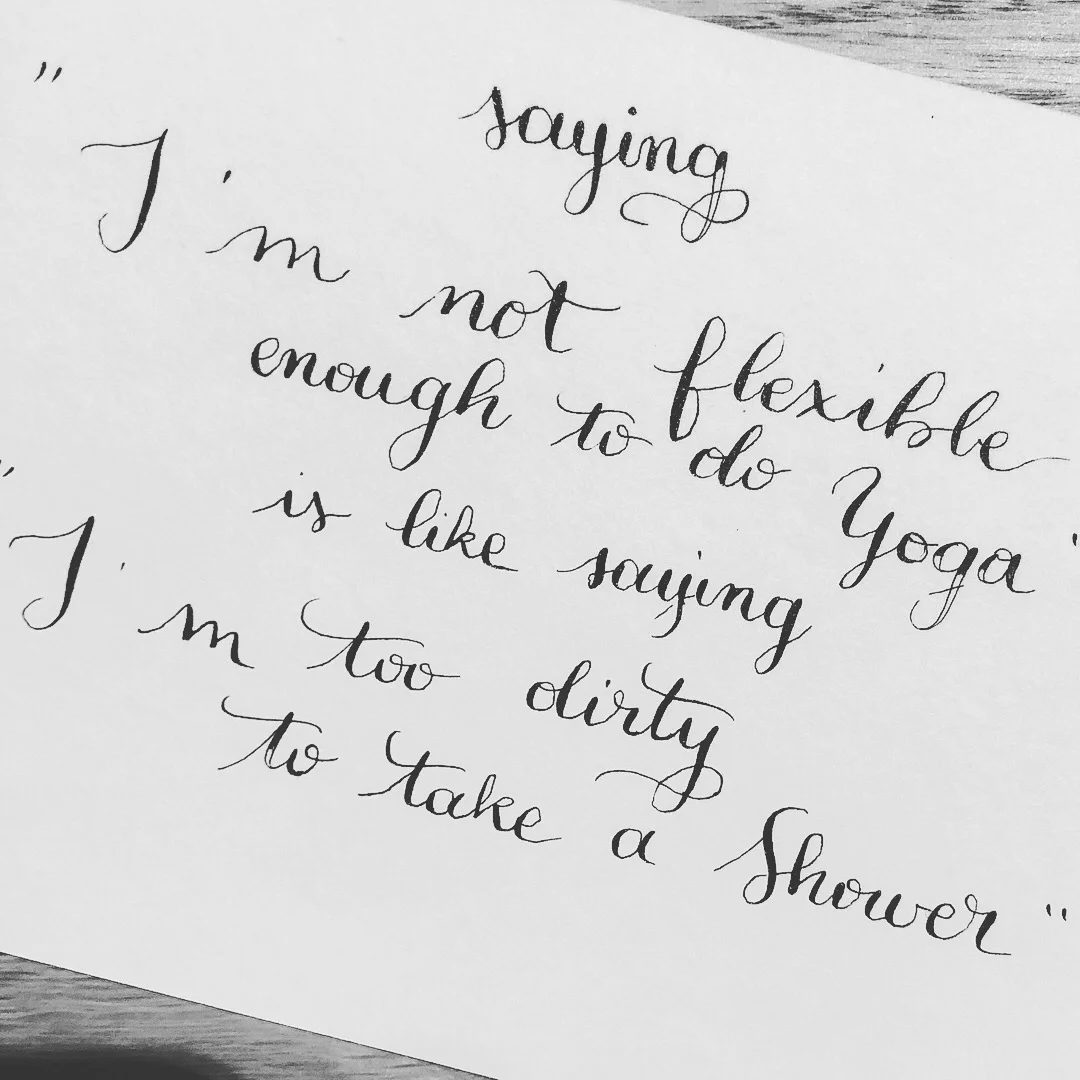 saying
"I'm not flexible
enough to do Yoga"
is like saying
"I'm too dirty
to take a Shower"